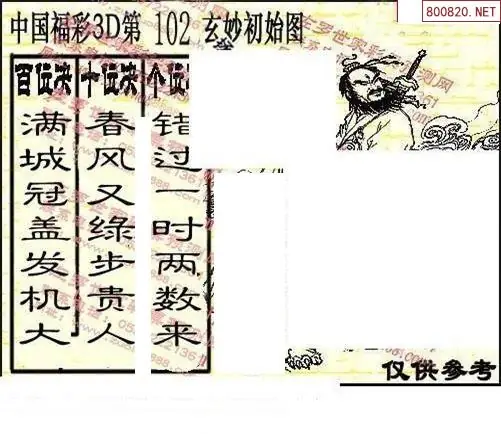 800820.NET
中国福彩3D第 102 玄妙初始图
百位决
满城冠盖发机大
十位决
春风又绿步贵人
个位
错过一时两数来
仅供参考